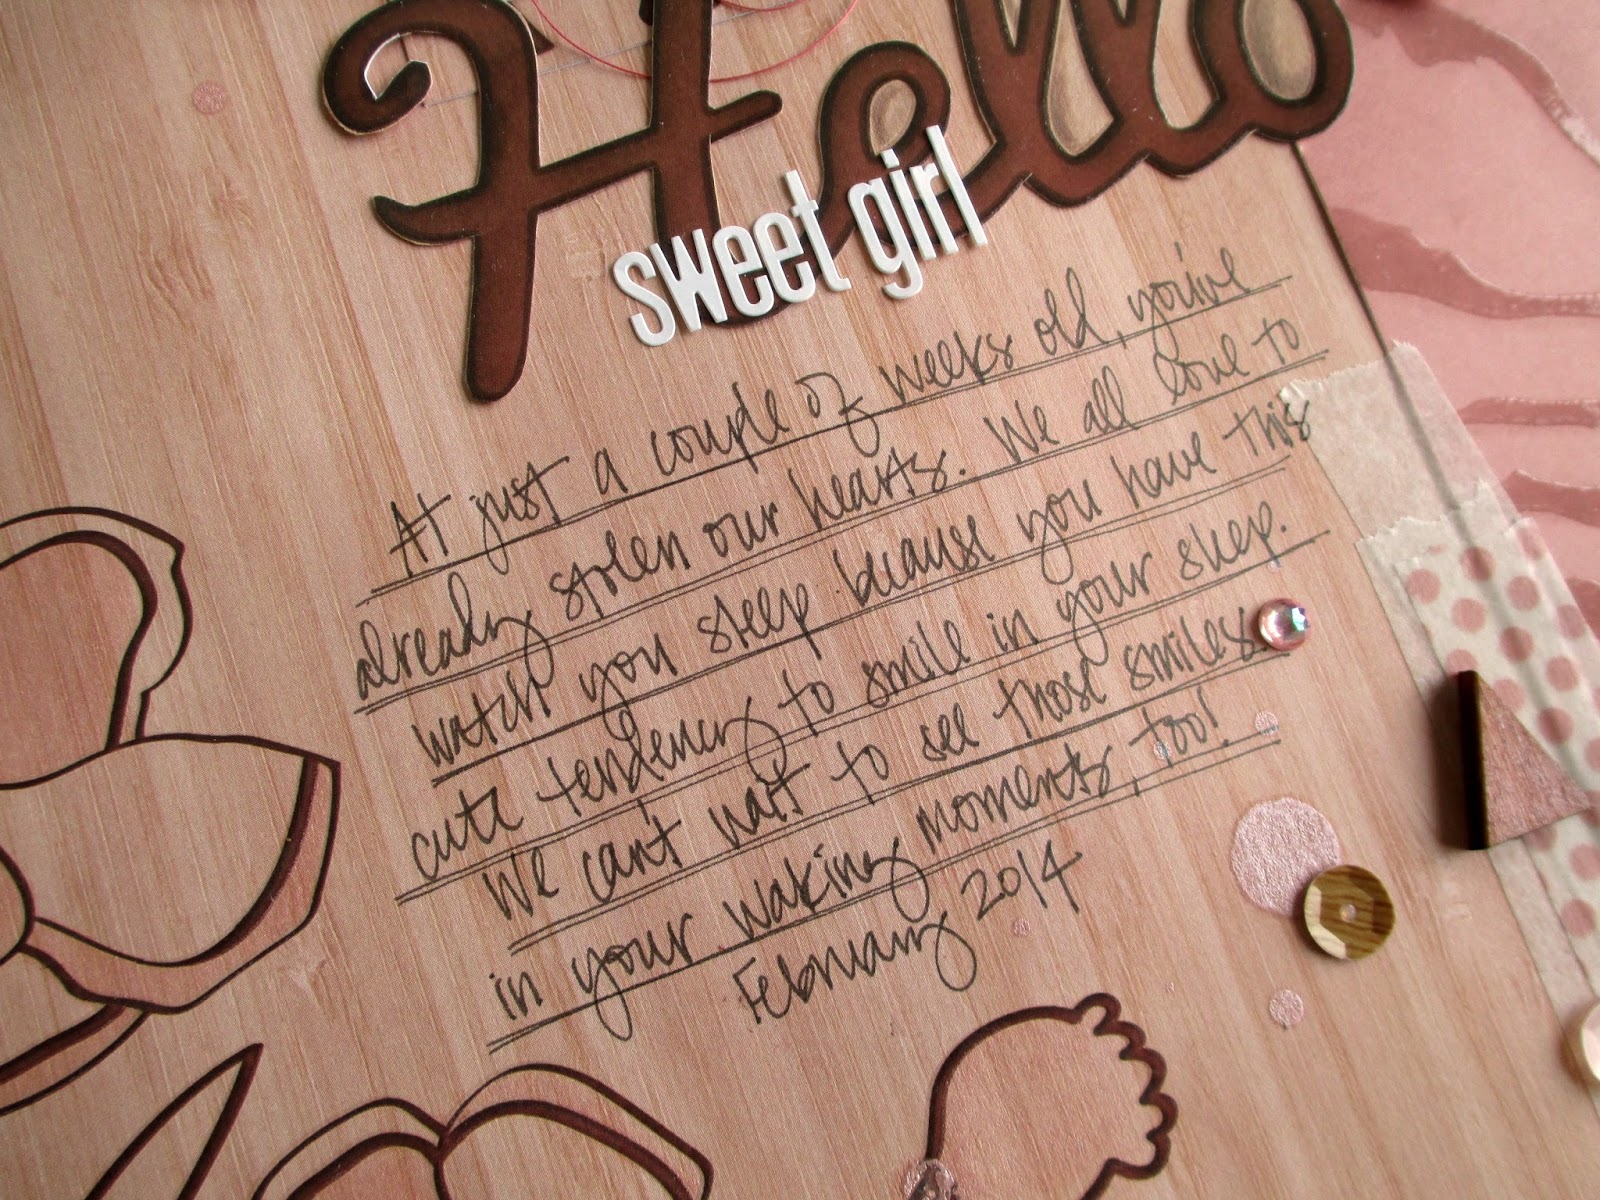 Hello
sweet girl
At just a couple of weeks old, you've
already stolen our hearts. We all love to
watch you sleep because you have this
cute tendency to smile in your sleep.
We can't wait to see those smiles
in your waking moments, too!
February 2014